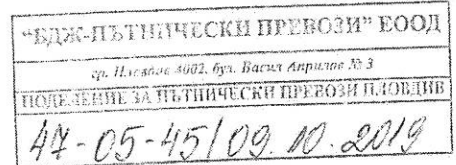 “БДЖ-ПЪТНИЧЕСКИ ПРЕВОЗИ” ЕООД
гр. Пловдив 4002, бул. Васил Априлов № 3
ПОДЕЛЕНИЕ ЗА ПЪТНИЧЕСКИ ПРЕВОЗИ ПЛОВДИВ
47-05-45/09.10.2019